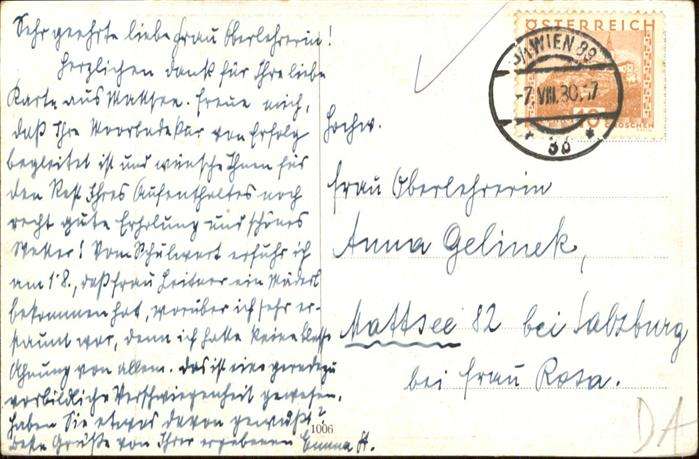 Sehr geehrte liebe Frau Oberlehrerin!
Herzlichen Dank für Ihre liebe
Karte aus Mattsee. Freue mich,
daß Ihre Moorbadekur von Erfolg
begleitet ist und wünsche Ihnen für
den Rest Ihres Aufenthaltes noch
recht gute Erholung und schönes
Wetter! Vom Schulwart erfuhr ich
am 1.8., daß Frau Leitner ein Mäderl
bekommen hat, worüber ich sehr er-
staunt war, denn ich hatte keine blasse
Ahnung von allem. Das ist eine geradezu
vorbildliche Verschwiegenheit gewesen.
Haben Sie etwas davon gewußt?
Beste Grüße von Ihrer ergebenen Emma H.
1006
ÖSTERREICH
WIEN 89
-7.VIII.30.-7
* 3b *
10
GROSCHEN
Hochw.
Frau Oberlehrerin
Anna Gelinek,
Mattsee 82 bei Salzburg
bei Frau Rosa.
DA